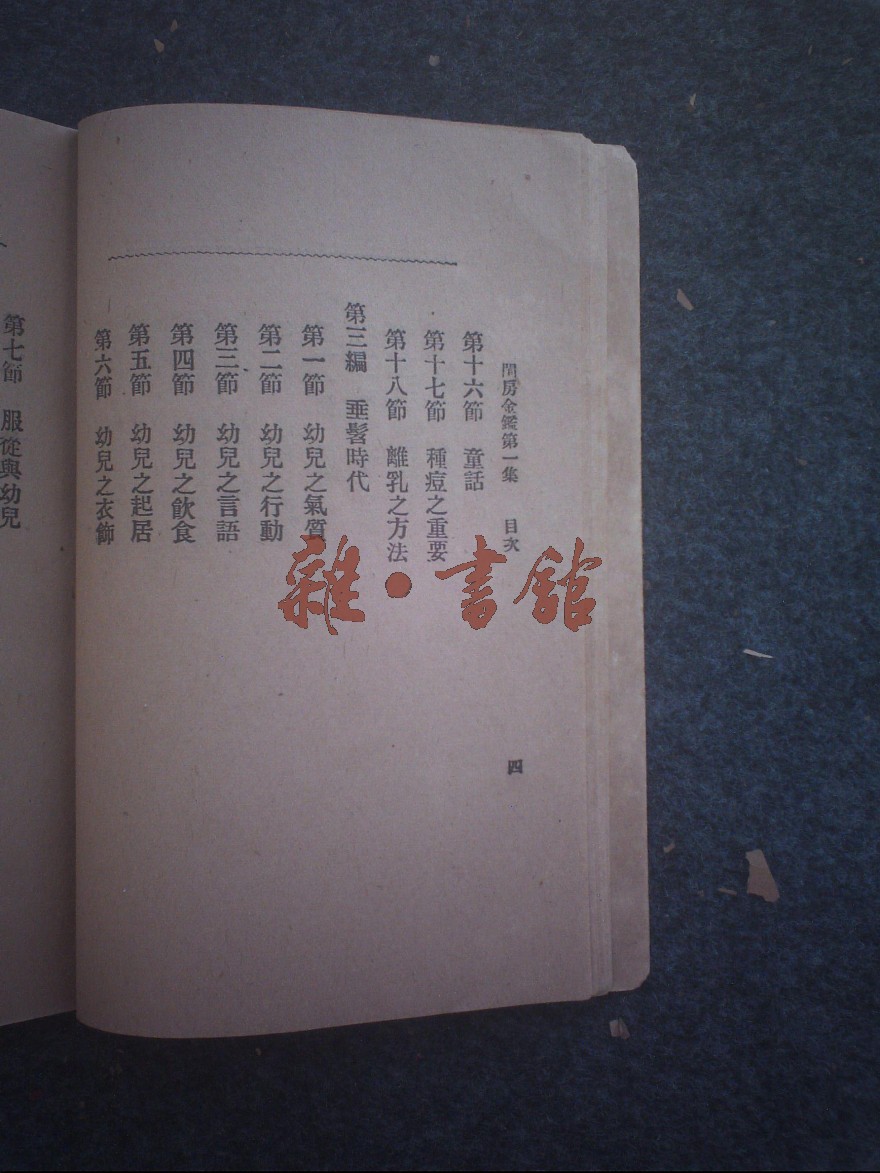 閨房金鑑第一集 目次 四
第十六節 童話
第十七節 種痘之重要
第十八節 離乳之方法
第三編 垂髫時代
第一節 幼兒之氣質
第二節 幼兒之行動
第三節 幼兒之言語
第四節 幼兒之飲食
第五節 幼兒之起居
第六節 幼兒之衣飾
第七節 服從與幼兒
雜·書館